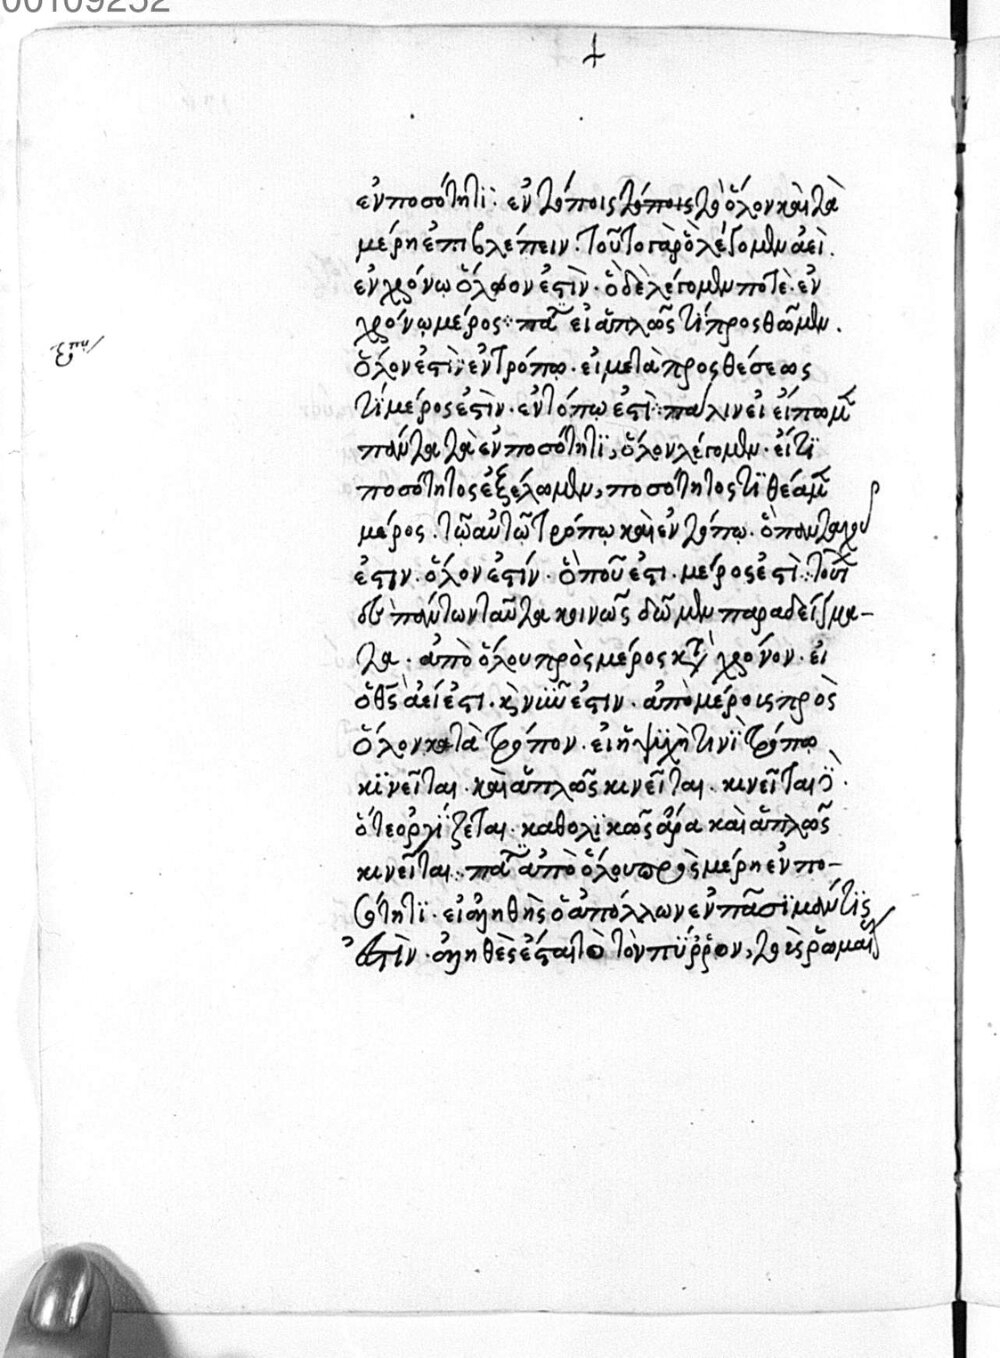 00109252
ἐν ποσότητϊ· ἐν τόποις τόποις τὸ ὅλον καὶ τὰ
μέρη ἐπιβλέπειν· τοῦτο γὰρ ὃ λέγομεν ἀεὶ.
ἐν χρόνῳ ὅλον ἐστὶν· ὃ δὲ λέγομεν ποτὲ· ἐν
χρόνῳ μέρος· εἰ ἁπλῶς τί προσθῶμεν.
ὅλον ἐστὶν ἐν τρόπῳ· εἰ μετὰ προσθέσεως
τί μέρος ἐστὶν· ἐν τόπῳ ἐστὶ· πάλιν εἰ εἴπωμεν
πάντα τὰ ἐν ποσότητϊ, ὅλον λέγομεν· εἴ τϊ
ποσότητος ἐξέλωμεν, ποσότητος τϊ
μέρος· τῷ αὐτῷ τρόπῳ καὶ ἐν τόπῳ· ὃ πανταχοῦ
ἐστιν· ὅλον ἐστίν· ὃ ποῦ ἐστι· μέρος ἐστὶ·
πάντων ταῦτα κοινῶς δῶμεν παραδείγμα-
τα· ἀπὸ ὅλου πρὸς μέρος κατὰ χρόνον· εἰ
ὁ θεὸς ἀεί ἐστι· καὶ νῦν ἐστιν· ἀπὸ μέροις πρὸς
ὅλον κατὰ τρόπον· εἰ ἡ ψϋχὴ τινϊ τρόπῳ
κϊνεῖται· καὶ ἁπλῶς κινεῖται· κινεῖται
ὅτε ὀργϊζεται· καθολϊκῶς ἄρα καὶ ἁπλῶς
κινεῖται· ἀπὸ ὅλου πρὸς μέρη ἐν πο-
σότητϊ· εἰ ἀληθὴς ὁ ἀπόλλων ἐν πᾶσϊ μάντϊς
ἐστὶν· ἀληθὲς ἔσται τὸ τὸν πϋῤῥον, τοὺς ῥωμαί